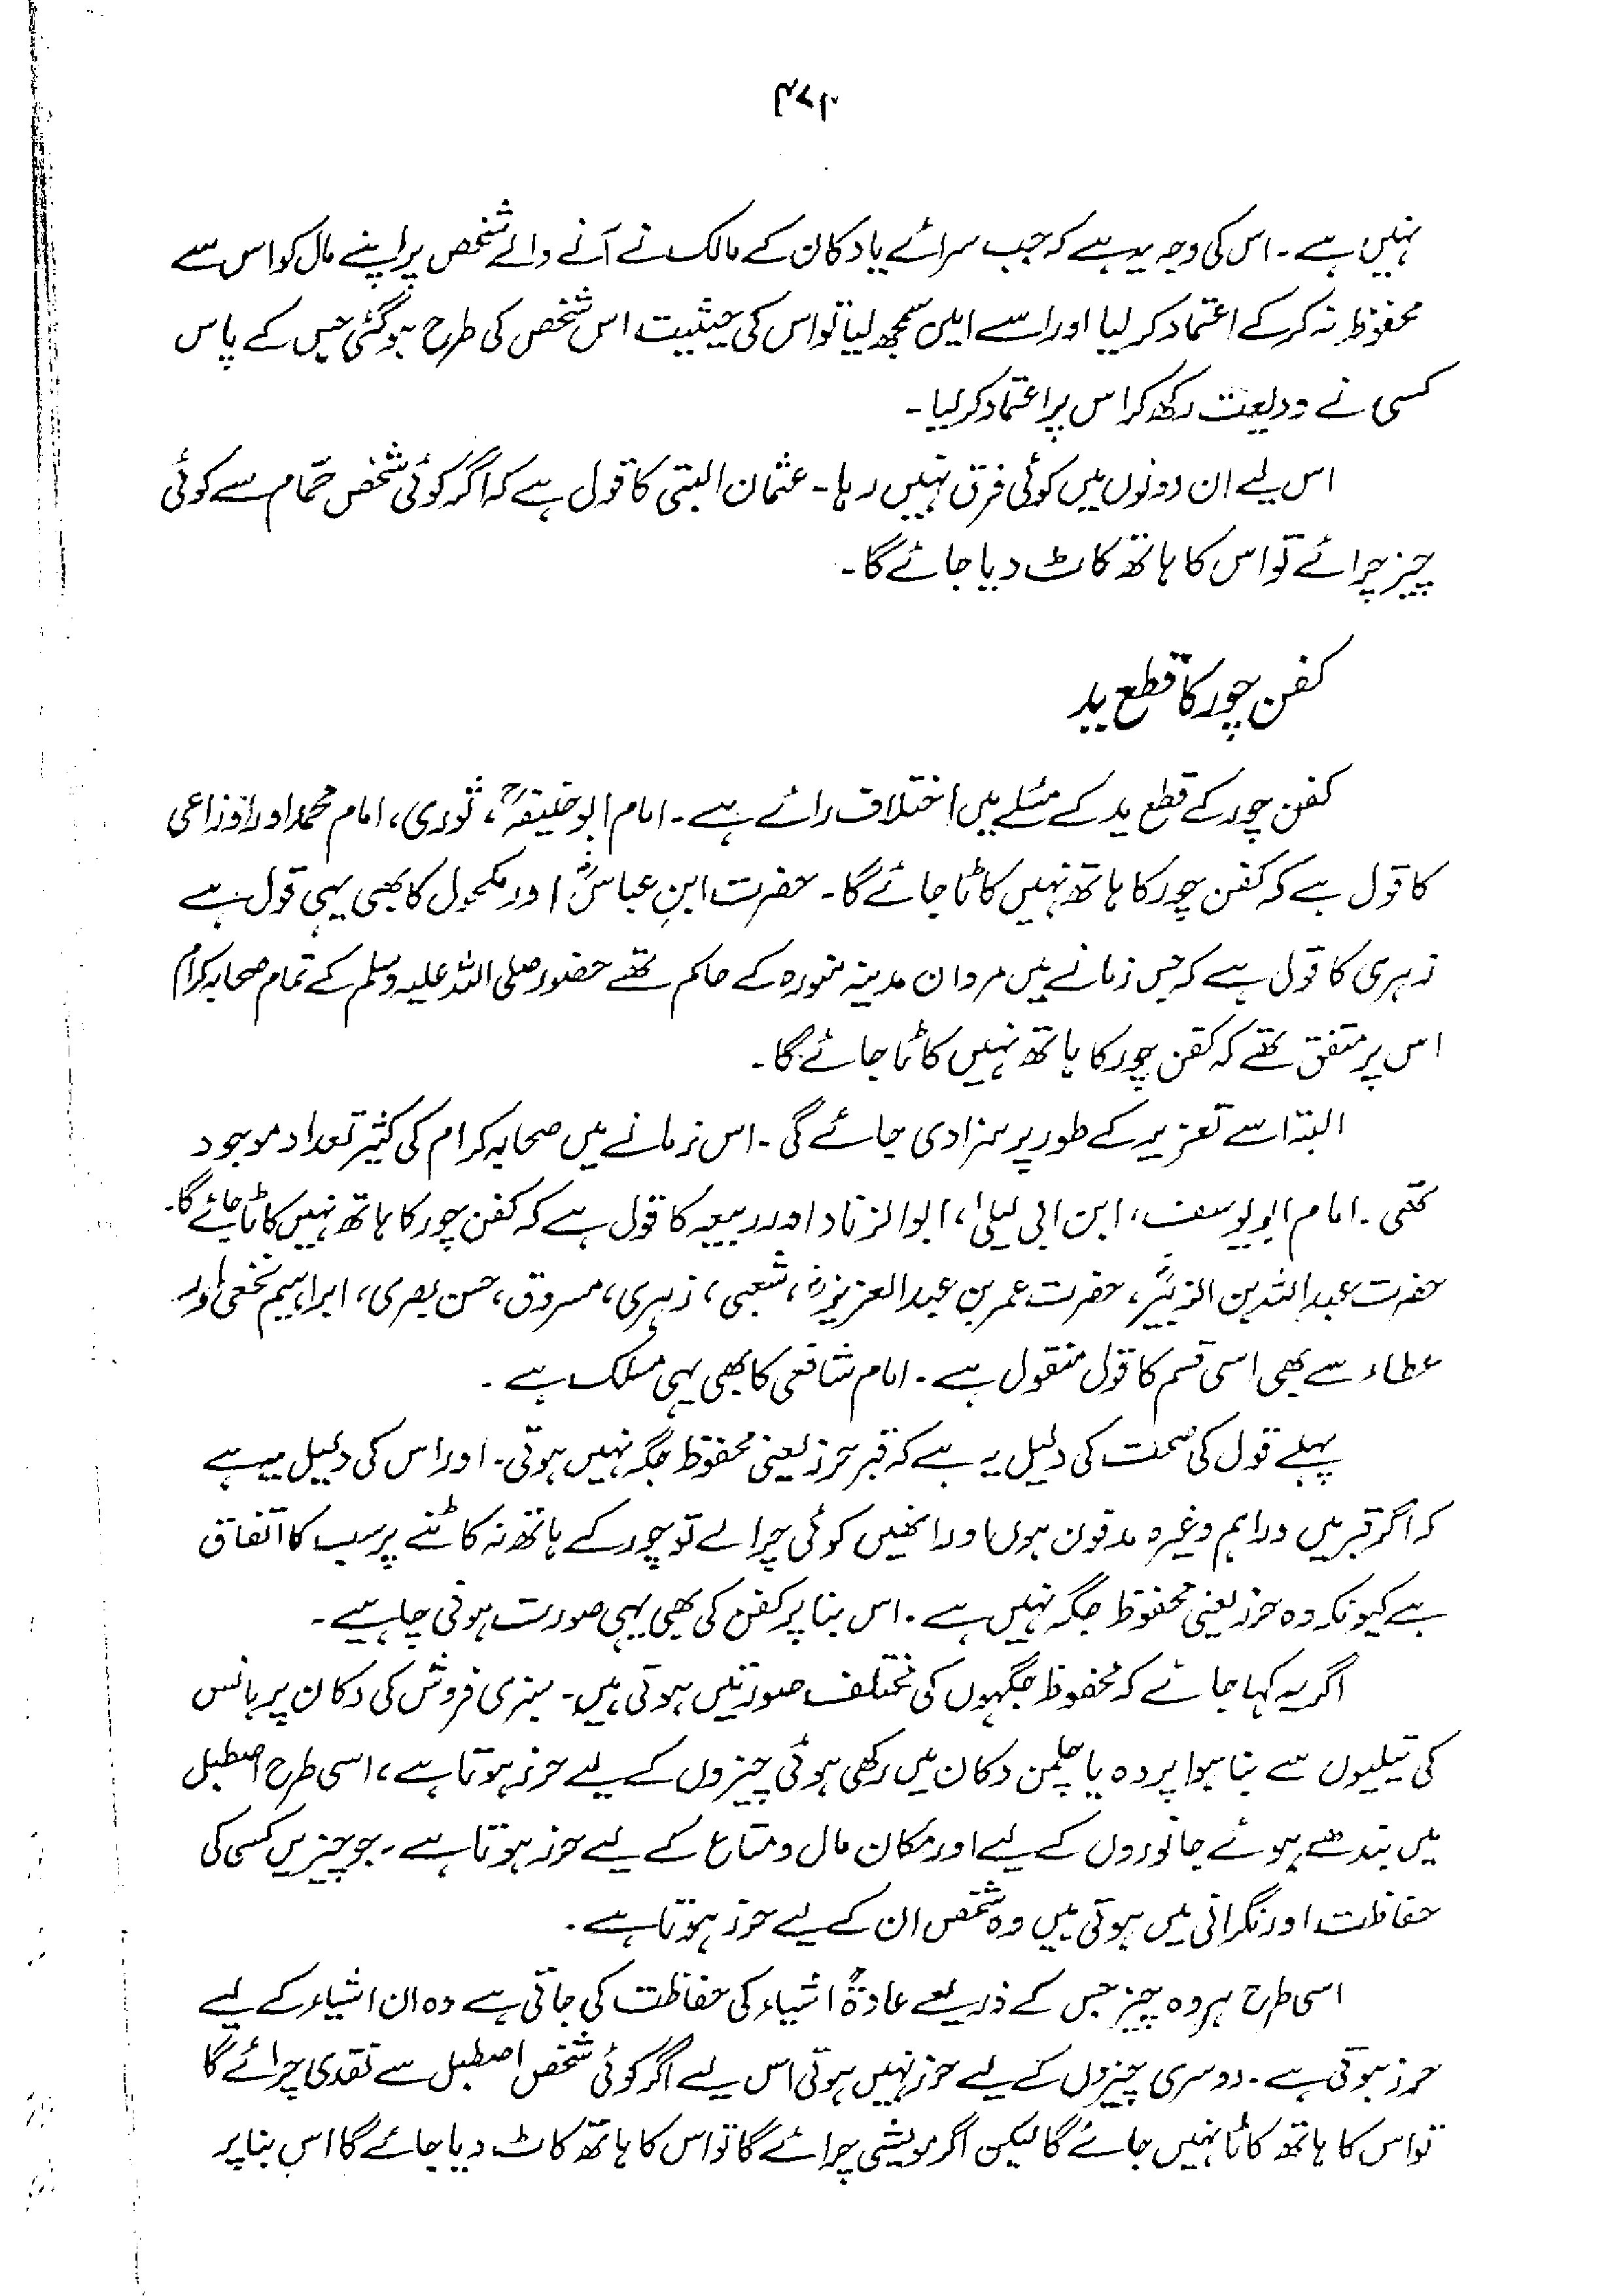 ۴۷۰
نہیں ہے۔ اس کی وجہ یہ ہے کہ جب سرائے یا دکان کے مالک نے آنے والے شخص پر اپنے مال کو اس سے
محفوظ نہ کر کے اعتماد کر لیا اور اسے امین سمجھ لیا تو اس کی حیثیت اس شخص کی طرح ہو گئی جس کے پاس
کسی نے ودیعت رکھ کر اس پر اعتماد کر لیا۔
اس لیے ان دونوں میں کوئی فرق نہیں رہا۔ عثمان البتی کا قول ہے کہ اگر کوئی شخص حمّام سے کوئی
چیز چرائے تو اس کا ہاتھ کاٹ دیا جائے گا۔
کفن چور کا قطع ید
کفن چور کے قطع ید کے مسئلے میں اختلاف رائے ہے۔ امام ابو حنیفہؒ، ثوری، امام محمد اور اوزاعی
کا قول ہے کہ کفن چور کا ہاتھ نہیں کاٹا جائے گا۔ حضرت ابن عباسؓ اور مکحول کا بھی یہی قول ہے
زہری کا قول ہے کہ جس زمانے میں مروان مدینہ منورہ کے حاکم تھے حضور صلی اللہ علیہ وسلم کے تمام صحابہ کرام
اس پر متفق تھے کہ کفن چور کا ہاتھ نہیں کاٹا جائے گا۔
البتہ اسے تعزیر کے طور پر سزا دی جائے گی۔ اس زمانے میں صحابہ کرام کی کثیر تعداد موجود
تھی۔ امام ابو یوسف، ابن ابی لیلیٰ، ابو الزناد اور ربیعہ کا قول ہے کہ کفن چور کا ہاتھ نہیں کاٹا جائے گا۔
حضرت عبداللہ بن الزبیرؓ، حضرت عمر بن عبدالعزیزؒ، شعبی، زہری، مسروق، حسن بصری، ابراہیم نخعی اور
عطاء سے بھی اسی قسم کا قول منقول ہے۔ امام شافعی کا بھی یہی مسلک ہے۔
پہلے قول کی صحت کی دلیل یہ ہے کہ قبر حرز یعنی محفوظ جگہ نہیں ہوتی۔ اور اس کی دلیل یہ ہے
کہ اگر قبر میں دراہم وغیرہ مدفون ہوں اور انھیں کوئی چرا لے تو چور کے ہاتھ نہ کاٹنے پر سب کا اتفاق
ہے کیونکہ وہ حرز یعنی محفوظ جگہ نہیں ہے۔ اس بنا پر کفن کی بھی یہی صورت ہونی چاہیے۔
اگر یہ کہا جائے کہ محفوظ جگہوں کی مختلف صورتیں ہوتی ہیں۔ سبزی فروش کی دکان پر بانس
کی تیلیوں سے بنا ہوا پردہ یا چلمن دکان میں رکھی ہوئی چیزوں کے لیے حرز ہوتا ہے، اسی طرح اصطبل
میں بندھے ہوئے جانوروں کے لیے اور مکان مال و متاع کے لیے حرز ہوتا ہے۔ جو چیزیں کسی کی
حفاظت اور نگرانی میں ہوتی ہیں وہ شخص ان کے لیے حرز ہوتا ہے۔
اسی طرح ہر وہ چیز جس کے ذریعے عادۃً اشیاء کی حفاظت کی جاتی ہے وہ ان اشیاء کے لیے
حرز ہوتی ہے۔ دوسری چیزوں کے لیے حرز نہیں ہوتی اس لیے اگر کوئی شخص اصطبل سے نقدی چرائے گا
تو اس کا ہاتھ کاٹا نہیں جائے گا لیکن اگر مویشی چرائے گا تو اس کا ہاتھ کاٹ دیا جائے گا اس بنا پر